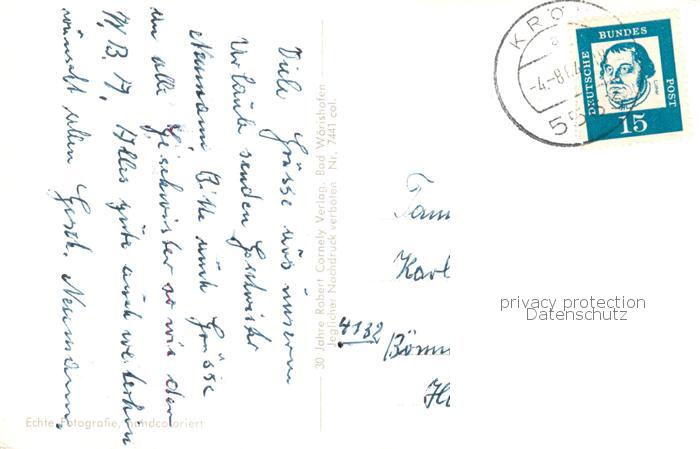 Viele Grüsse aus unserm
Urlaub senden Geschwister
Neumann, Bitte auch Grüsse
an alle Geschwister so wie der
W.B.A. Alles gute auch weiterhin
wünscht allen Gesch. Neumann.
30 Jahre Robert Cornely Verlag, Bad Wörishofen
Jeglicher Nachdruck verboten Nr. 7441 col.
Echte Fotografie, handcoloriert
KRÖ
a
-4.-8
55
DEUTSCHE BUNDES POST
15
Fam
Karl
4132
Höm
privacy protection
Datenschutz